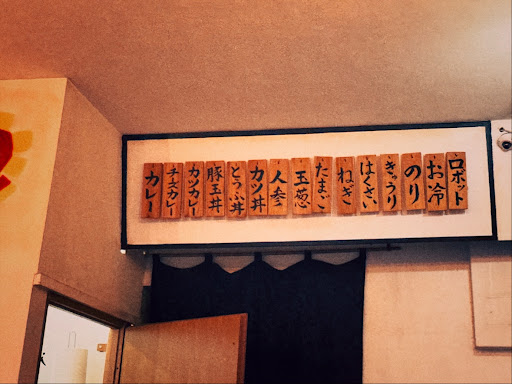 ロボット
お冷
のり
きゅうり
はくさい
ねぎ
たまご
玉葱
人参
カツ丼
とうふ丼
豚玉丼
カツカレー
チーズカレー
カレー